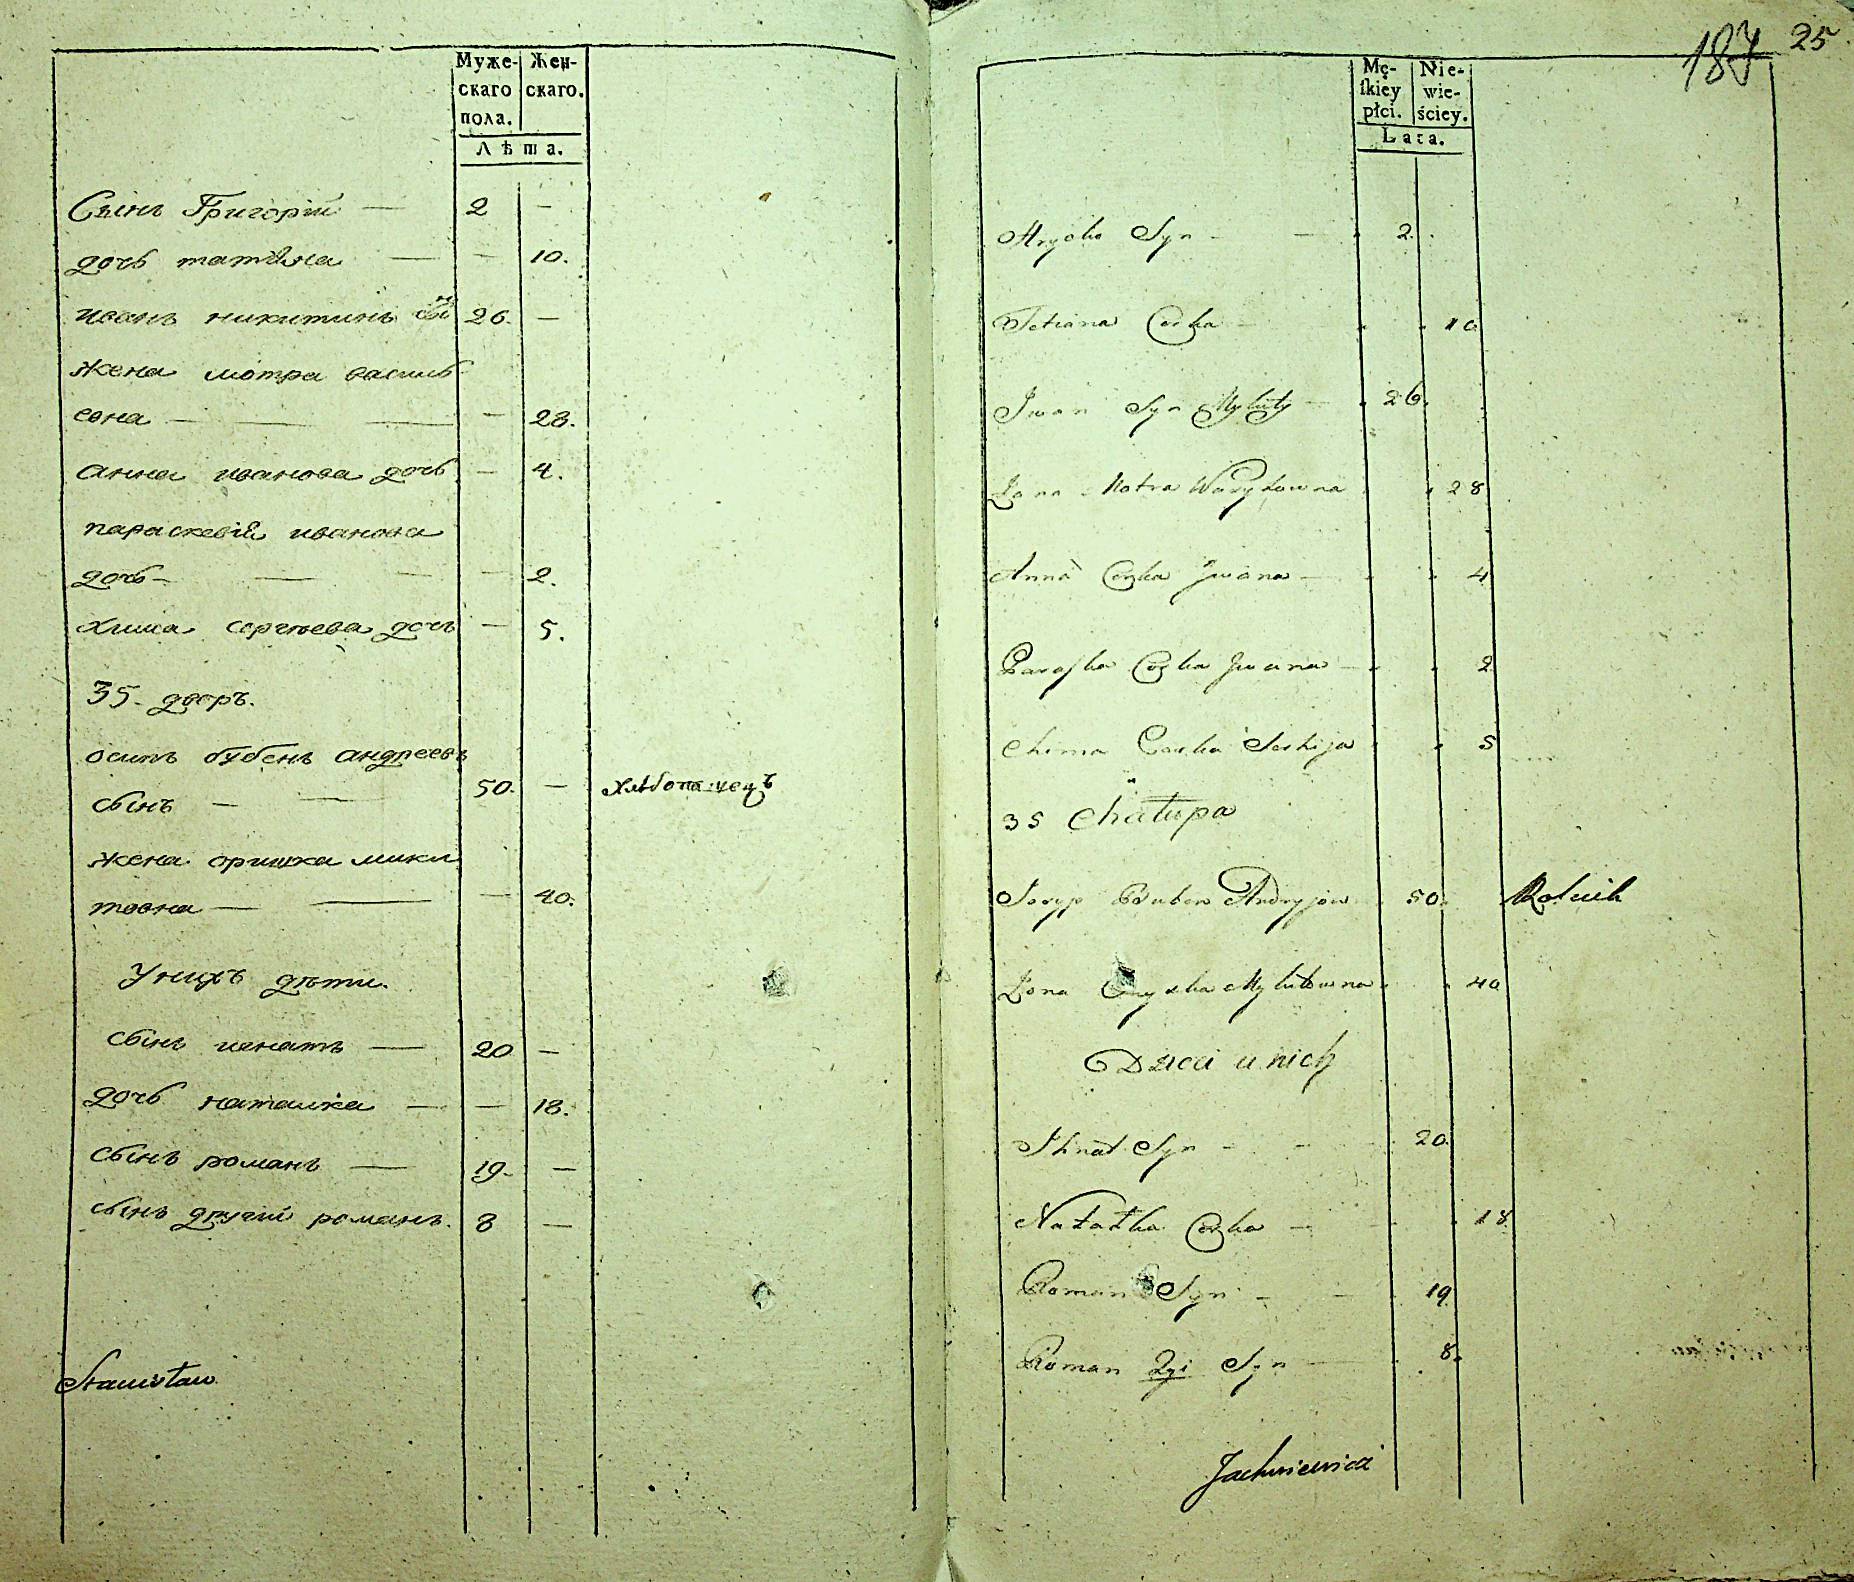 Муже-
скаго
пола.
Жен-
скаго.
Лѣта.
Сынъ Григорій — 2 —
дочь татіяна — — 10.
иванъ никитинъ сынъ 26. —
жена мотра василь
евна — — 28.
анна иванова дочь — 4.
параскевія иванова
дочь — — 2.
хима сергѣева дочь — 5.
35. дворъ.
осипъ бубенъ андреевъ
сынъ — 50. — хлѣбопашецъ
жена оришка мики
товна — — 40.
У нихъ дѣти.
сынъ игнатъ — 20 —
дочь наталка — — 18.
сынъ романъ — 19. —
сынъ другій романъ. 8 —
Stanisław
187 25
Mę-
skiey
płci.
Nie-
wie-
ściey.
Lata.
Hryćko Syn 2.
Tetiana Corka 10
Jwan Syn Mykity 26.
Żona Motra Wasylowna 28
Anna Corka Jwana 4
Paraska Corka Jwana 2
Chima Corka Serhija 5
35 Chałupa
Josyp Buben Andryjow 50. Rolnik
Żona Oryszka Mykitowna 40
Dzieci u nich
Ihnat Syn 20.
Natałka Corka 18
Roman Syn 19.
Roman 2gi Syn 8.
Jachniewicz